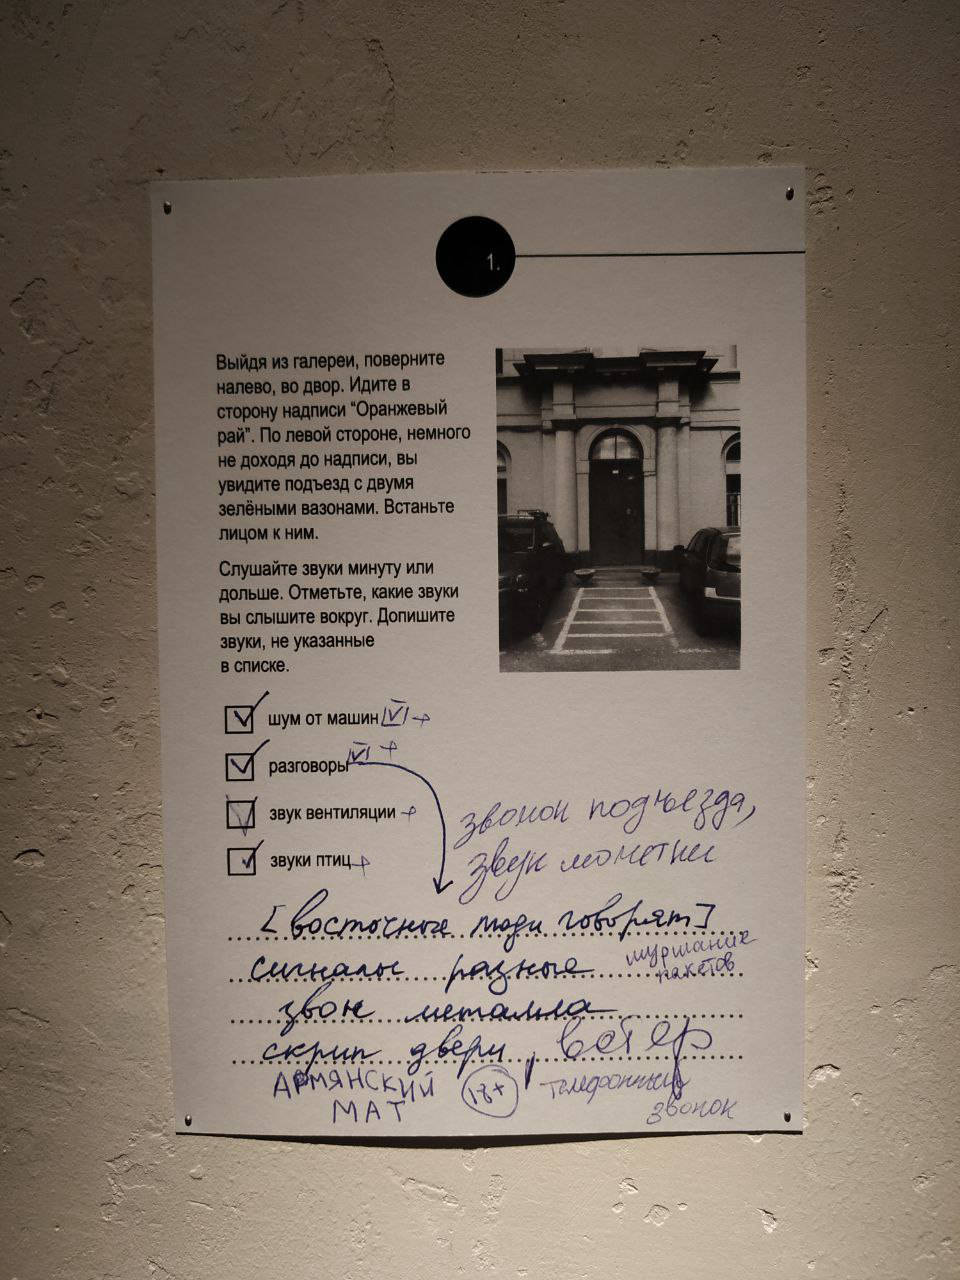 1.
Выйдя из галереи, поверните
налево, во двор. Идите в
сторону надписи “Оранжевый
рай”. По левой стороне, немного
не доходя до надписи, вы
увидите подъезд с двумя
зелёными вазонами. Встаньте
лицом к ним.
Слушайте звуки минуту или
дольше. Отметьте, какие звуки
вы слышите вокруг. Допишите
звуки, не указанные
в списке.
шум от машин
разговоры
звук вентиляции
звуки птиц
звонок подъезда,
звук монетки
[восточные люди говорят]
сигналы разные
шуршание
пакетов
звон металла
скрип двери, ветер
АРМЯНСКИЙ
МАТ
18+
телефонный
звонок